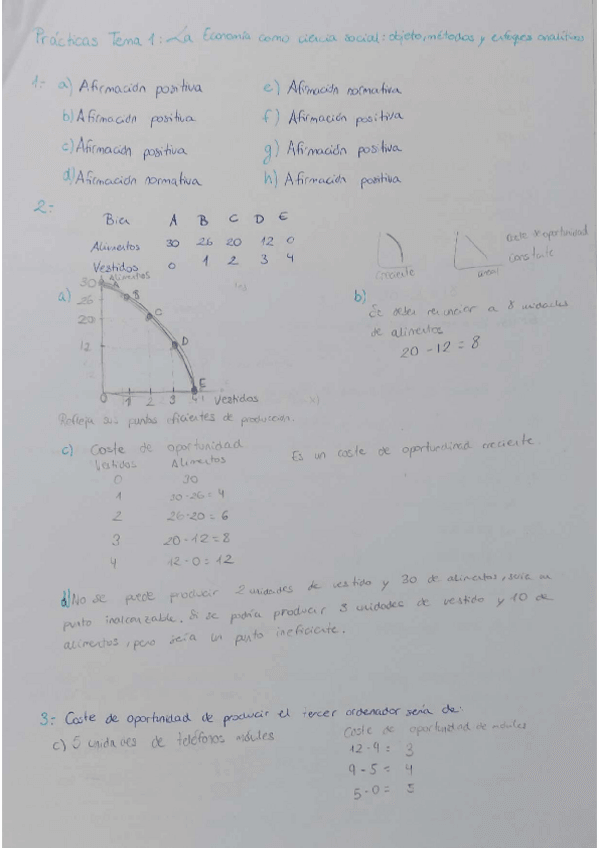 Prácticas Tema 1: La Economía como ciencia social: objeto, métodos y enfoques analíticos
1:- a) Afirmación positiva
b) Afirmación positiva
c) Afirmación positiva
d) Afirmación normativa
e) Afirmación normativa
f) Afirmación positiva
g) Afirmación positiva
h) Afirmación positiva
2:-
Bien A B C D E
Alimentos 30 26 20 12 0
Vestidos 0 1 2 3 4
a)
Alimentos
30 A
26 B
20 C
12 D
E
0 1 2 3 4 Vestidos
Refleja sus puntos eficientes de producción.
creciente
coste de oportunidad
constante
b)
Se debe renunciar a 8 unidades
de alimentos
20 - 12 = 8
c) Coste de oportunidad
Vestidos Alimentos
0 30
1 30-26 = 4
2 26-20 = 6
3 20-12 = 8
4 12-0 = 12
Es un coste de oportunidad creciente.
d) No se puede producir 2 unidades de vestido y 30 de alimentos, sería un
punto inalcanzable. Si se podría producir 3 unidades de vestido y 10 de
alimentos, pero sería un punto ineficiente.
3:- Coste de oportunidad de producir el tercer ordenador sería de:
c) 5 unidades de teléfonos móviles
Coste de oportunidad de móviles
12-9 = 3
9-5 = 4
5-0 = 5